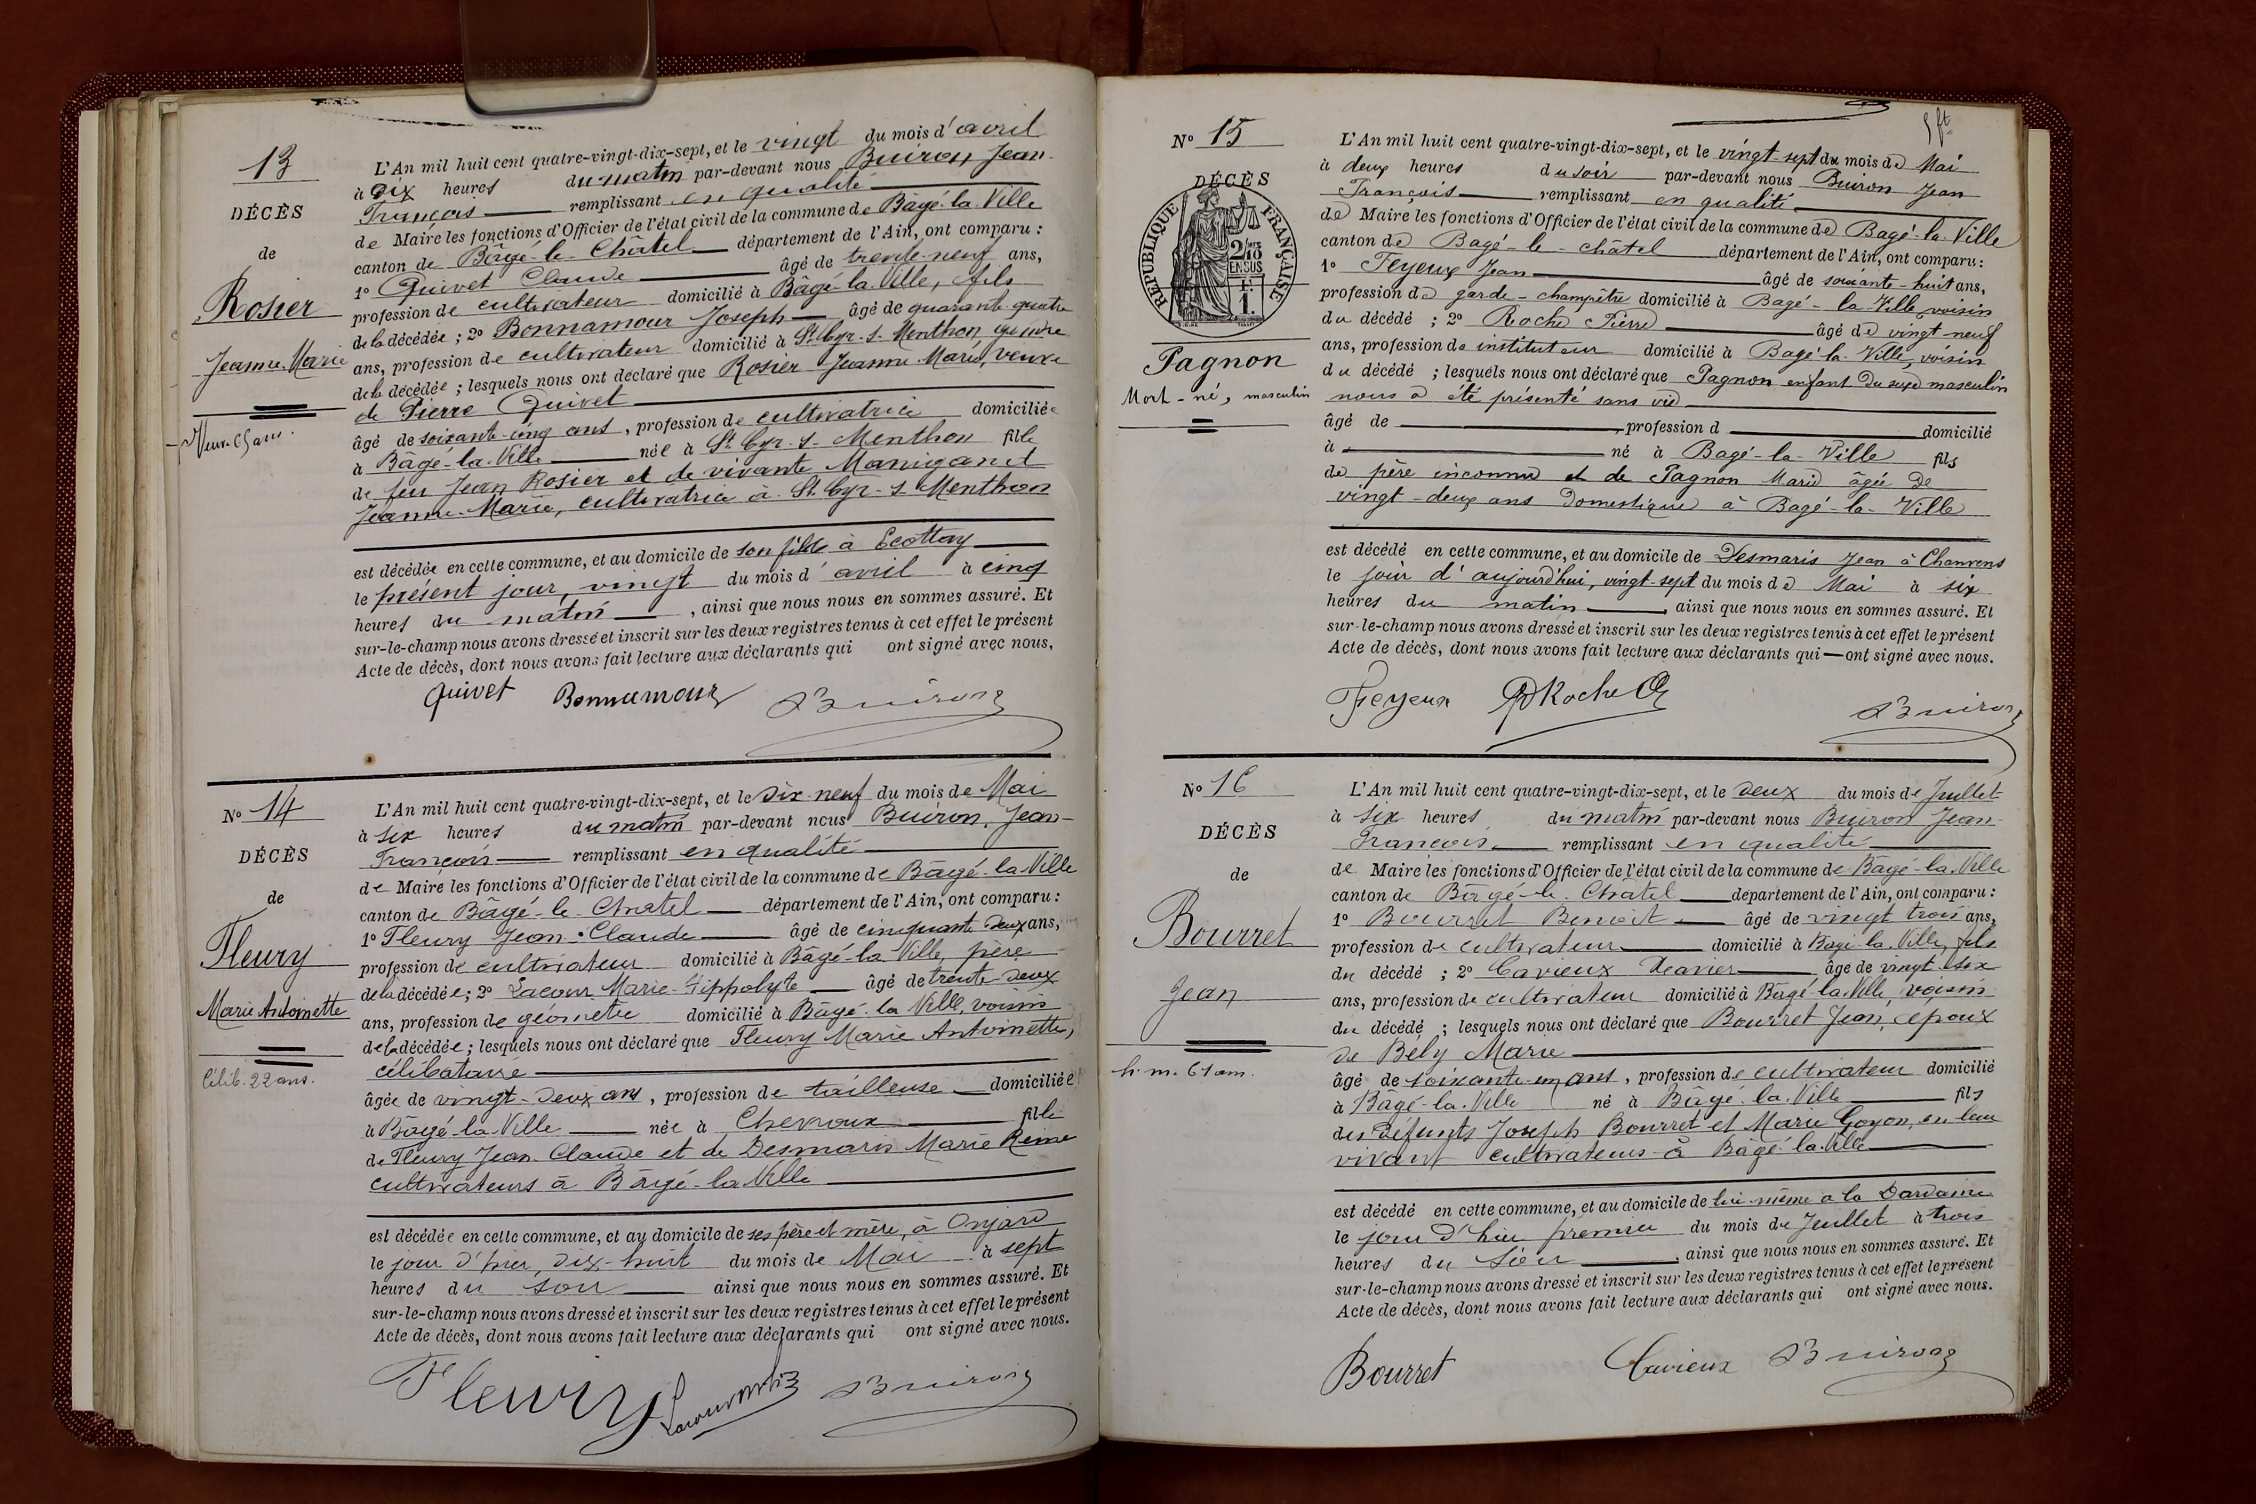 13
DÉCÈS
de
Rosier
Jeanne-Marie
Veuve 65 ans.
L'An mil huit cent quatre-vingt-dix-sept, et le vingt du mois d'avril
à dix heures du matin par-devant nous Buiron, Jean-
François remplissant en qualité
de Maire les fonctions d'Officier de l'état civil de la commune de Bâgé-la-Ville
canton de Bâgé-le-Châtel département de l'Ain, ont comparu :
1º Quivet Claude âgé de trente-neuf ans,
profession de cultivateur domicilié à Bâgé-la-Ville, fils
de la décédée ; 2º Bonnamour Joseph âgé de quarante-quatre
ans, profession de cultivateur domicilié à St Cyr-s-Menthon, gendre
de la décédée ; lesquels nous ont déclaré que Rosier Jeanne-Marie, veuve
de Pierre Quivet
âgé de soixante-cinq ans, profession de cultivatrice domiciliée
à Bâgé-la-Ville née à St Cyr-s-Menthon fille
de feu Jean Rosier et de vivante Maniganet
Jeanne-Marie, cultivatrice à St Cyr-s-Menthon
est décédée en cette commune, et au domicile de son fils à Ecottay
le présent jour, vingt du mois d'avril à cinq
heures du matin, ainsi que nous nous en sommes assuré. Et
sur-le-champ nous avons dressé et inscrit sur les deux registres tenus à cet effet le présent
Acte de décès, dont nous avons fait lecture aux déclarants qui ont signé avec nous.
Quivet Bonnamour Buiron
Nº 14
DÉCÈS
de
Fleury
Marie Antoinette
Célib. 22 ans.
L'An mil huit cent quatre-vingt-dix-sept, et le dix-neuf du mois de Mai
à six heures du matin par-devant nous Buiron, Jean-
François remplissant en qualité
de Maire les fonctions d'Officier de l'état civil de la commune de Bâgé-la-Ville
canton de Bâgé-le-Chatel département de l'Ain, ont comparu :
1º Fleury Jean-Claude âgé de cinquante-deux ans,
profession de cultivateur domicilié à Bâgé-la-Ville, père
de la décédée ; 2º Lacour Marie-Hippolyte âgé de trente-deux
ans, profession de géomètre domicilié à Bâgé-la-Ville, voisin
de la décédée ; lesquels nous ont déclaré que Fleury Marie Antoinette,
célibataire
âgée de vingt-deux ans, profession de tailleuse domiciliée
à Bâgé-la-Ville née à Chevroux fille
de Fleury Jean-Claude et de Desmaris Marie Reine
cultivateurs à Bâgé-la-Ville
est décédée en cette commune, et au domicile de ses père et mère, à Onjard
le jour d'hier, dix-huit du mois de Mai à sept
heures du soir ainsi que nous nous en sommes assuré. Et
sur-le-champ nous avons dressé et inscrit sur les deux registres tenus à cet effet le présent
Acte de décès, dont nous avons fait lecture aux déclarants qui ont signé avec nous.
Fleury Buiron
Nº 15
DÉCÈS
RÉPUBLIQUE FRANÇAISE
Pagnon
Mort-né, masculin
L'An mil huit cent quatre-vingt-dix-sept, et le vingt-sept du mois de Mai
à deux heures du soir par-devant nous Buiron Jean
François remplissant en qualité
de Maire les fonctions d'Officier de l'état civil de la commune de Bagé-la-Ville
canton de Bagé-le-châtel département de l'Ain, ont comparu :
1º Feyeux Jean âgé de soixante-huit ans,
profession de garde-champêtre domicilié à Bagé-la-Ville voisin
du décédé ; 2º Roche Pierre âgé de vingt neuf
ans, profession de instituteur domicilié à Bagé-la-Ville, voisin
du décédé ; lesquels nous ont déclaré que Pagnon enfant du sexe masculin
nous a été présenté sans vie
âgé de profession d domicilié
à né à Bagé-la-Ville fils
de père inconnu et de Pagnon Marie âgée de
vingt-deux ans domestique à Bagé-la-Ville
est décédé en cette commune, et au domicile de Desmaris Jean à Chanvens
le jour d'aujourd'hui, vingt-sept du mois de Mai à six
heures du matin, ainsi que nous nous en sommes assuré. Et
sur-le-champ nous avons dressé et inscrit sur les deux registres tenus à cet effet le présent
Acte de décès, dont nous avons fait lecture aux déclarants qui ont signé avec nous.
Feyeux Roche Buiron
Nº 16
DÉCÈS
de
Bourret
Jean
h. m. 61 ans.
L'An mil huit cent quatre-vingt-dix-sept, et le deux du mois de Juillet
à six heures du matin par-devant nous Buiron Jean-
François remplissant en qualité
de Maire les fonctions d'Officier de l'état civil de la commune de Bâgé-la-Ville
canton de Bâgé-le-Chatel département de l'Ain, ont comparu :
1º Bourret Benoit âgé de vingt trois ans,
profession de cultivateur domicilié à Bagé-la-Ville, fils
du décédé ; 2º Cavieux Xavier âgé de vingt-six
ans, profession de cultivateur domicilié à Bâgé-la-Ville, voisin
du décédé ; lesquels nous ont déclaré que Bourret Jean, époux
de Bély Marie
âgé de soixante-un ans, profession de cultivateur domicilié
à Bâgé-la-Ville né à Bâgé-la-Ville fils
des défunts Joseph Bourret et Marie Goyon, en leur
vivant cultivateurs à Bâgé-la-Ville
est décédé en cette commune, et au domicile de lui-même à la Dardaine
le jour d'hier premier du mois de Juillet à trois
heures du soir, ainsi que nous nous en sommes assuré. Et
sur-le-champ nous avons dressé et inscrit sur les deux registres tenus à cet effet le présent
Acte de décès, dont nous avons fait lecture aux déclarants qui ont signé avec nous.
Bourret Cavieux Buiron